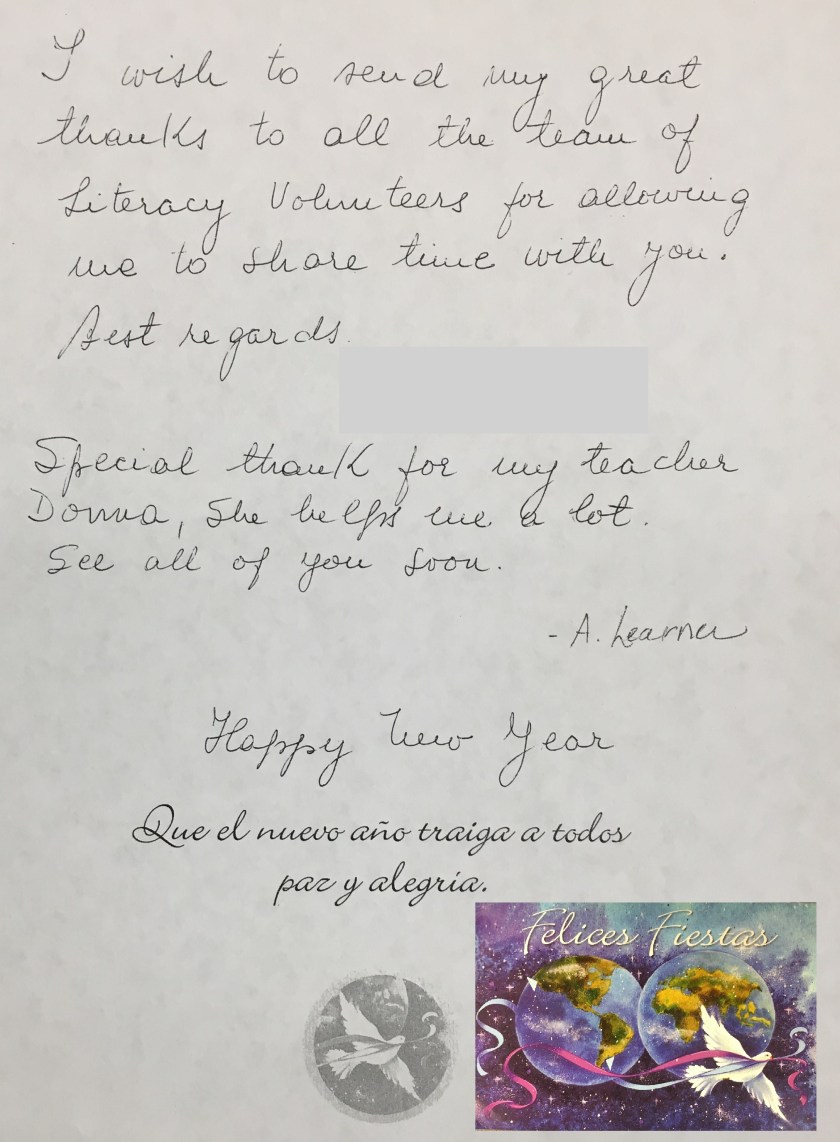 I wish to send my great
thanks to all the team of
Literacy Volunteers for allowing
me to share time with you.
Best regards.
Special thank for my teacher
Donna, She helps me a lot.
See all of you soon.
- A. Learner
Happy New Year
Que el nuevo año traiga a todos
paz y alegría.
Felices Fiestas